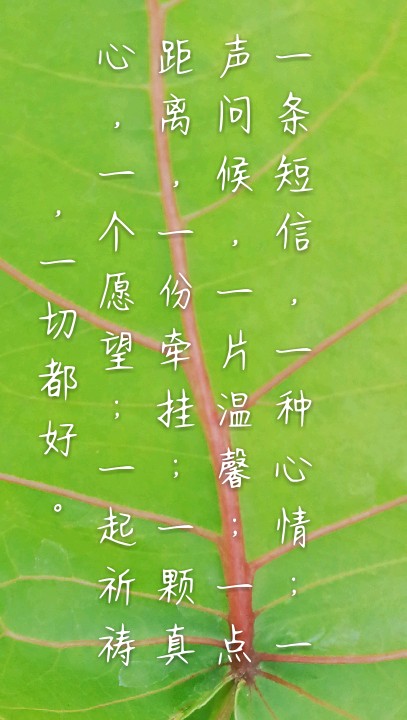 一条短信，一种心情；一
声问候，一片温馨；一点
距离，一份牵挂；一颗真
心，一个愿望；一起祈祷
，一切都好。